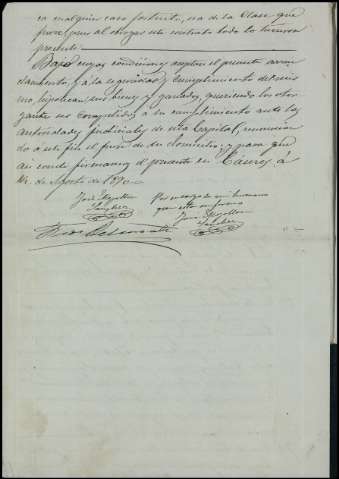 en cualquier caso fortuito, sea de la clase que
fuere, pues al otorgar este contrato todo lo tuvieron
presente.
Bajo cuyas condiciones aceptan el presente arren-
damiento, y á la seguridad y cumplimiento del mis-
mo hipotecan sus bienes y ganados, queriendo los otor
gantes ser compelidos á su cumplimiento ante las
autoridades judiciales de esta Capital, renuncian
do á este fin el fuero de su domicilio; y para que
así conste firmamos el presente en Cáceres á
14 de Agosto de 1890
José
Por encargo de mi hermano
que está enfermo
José